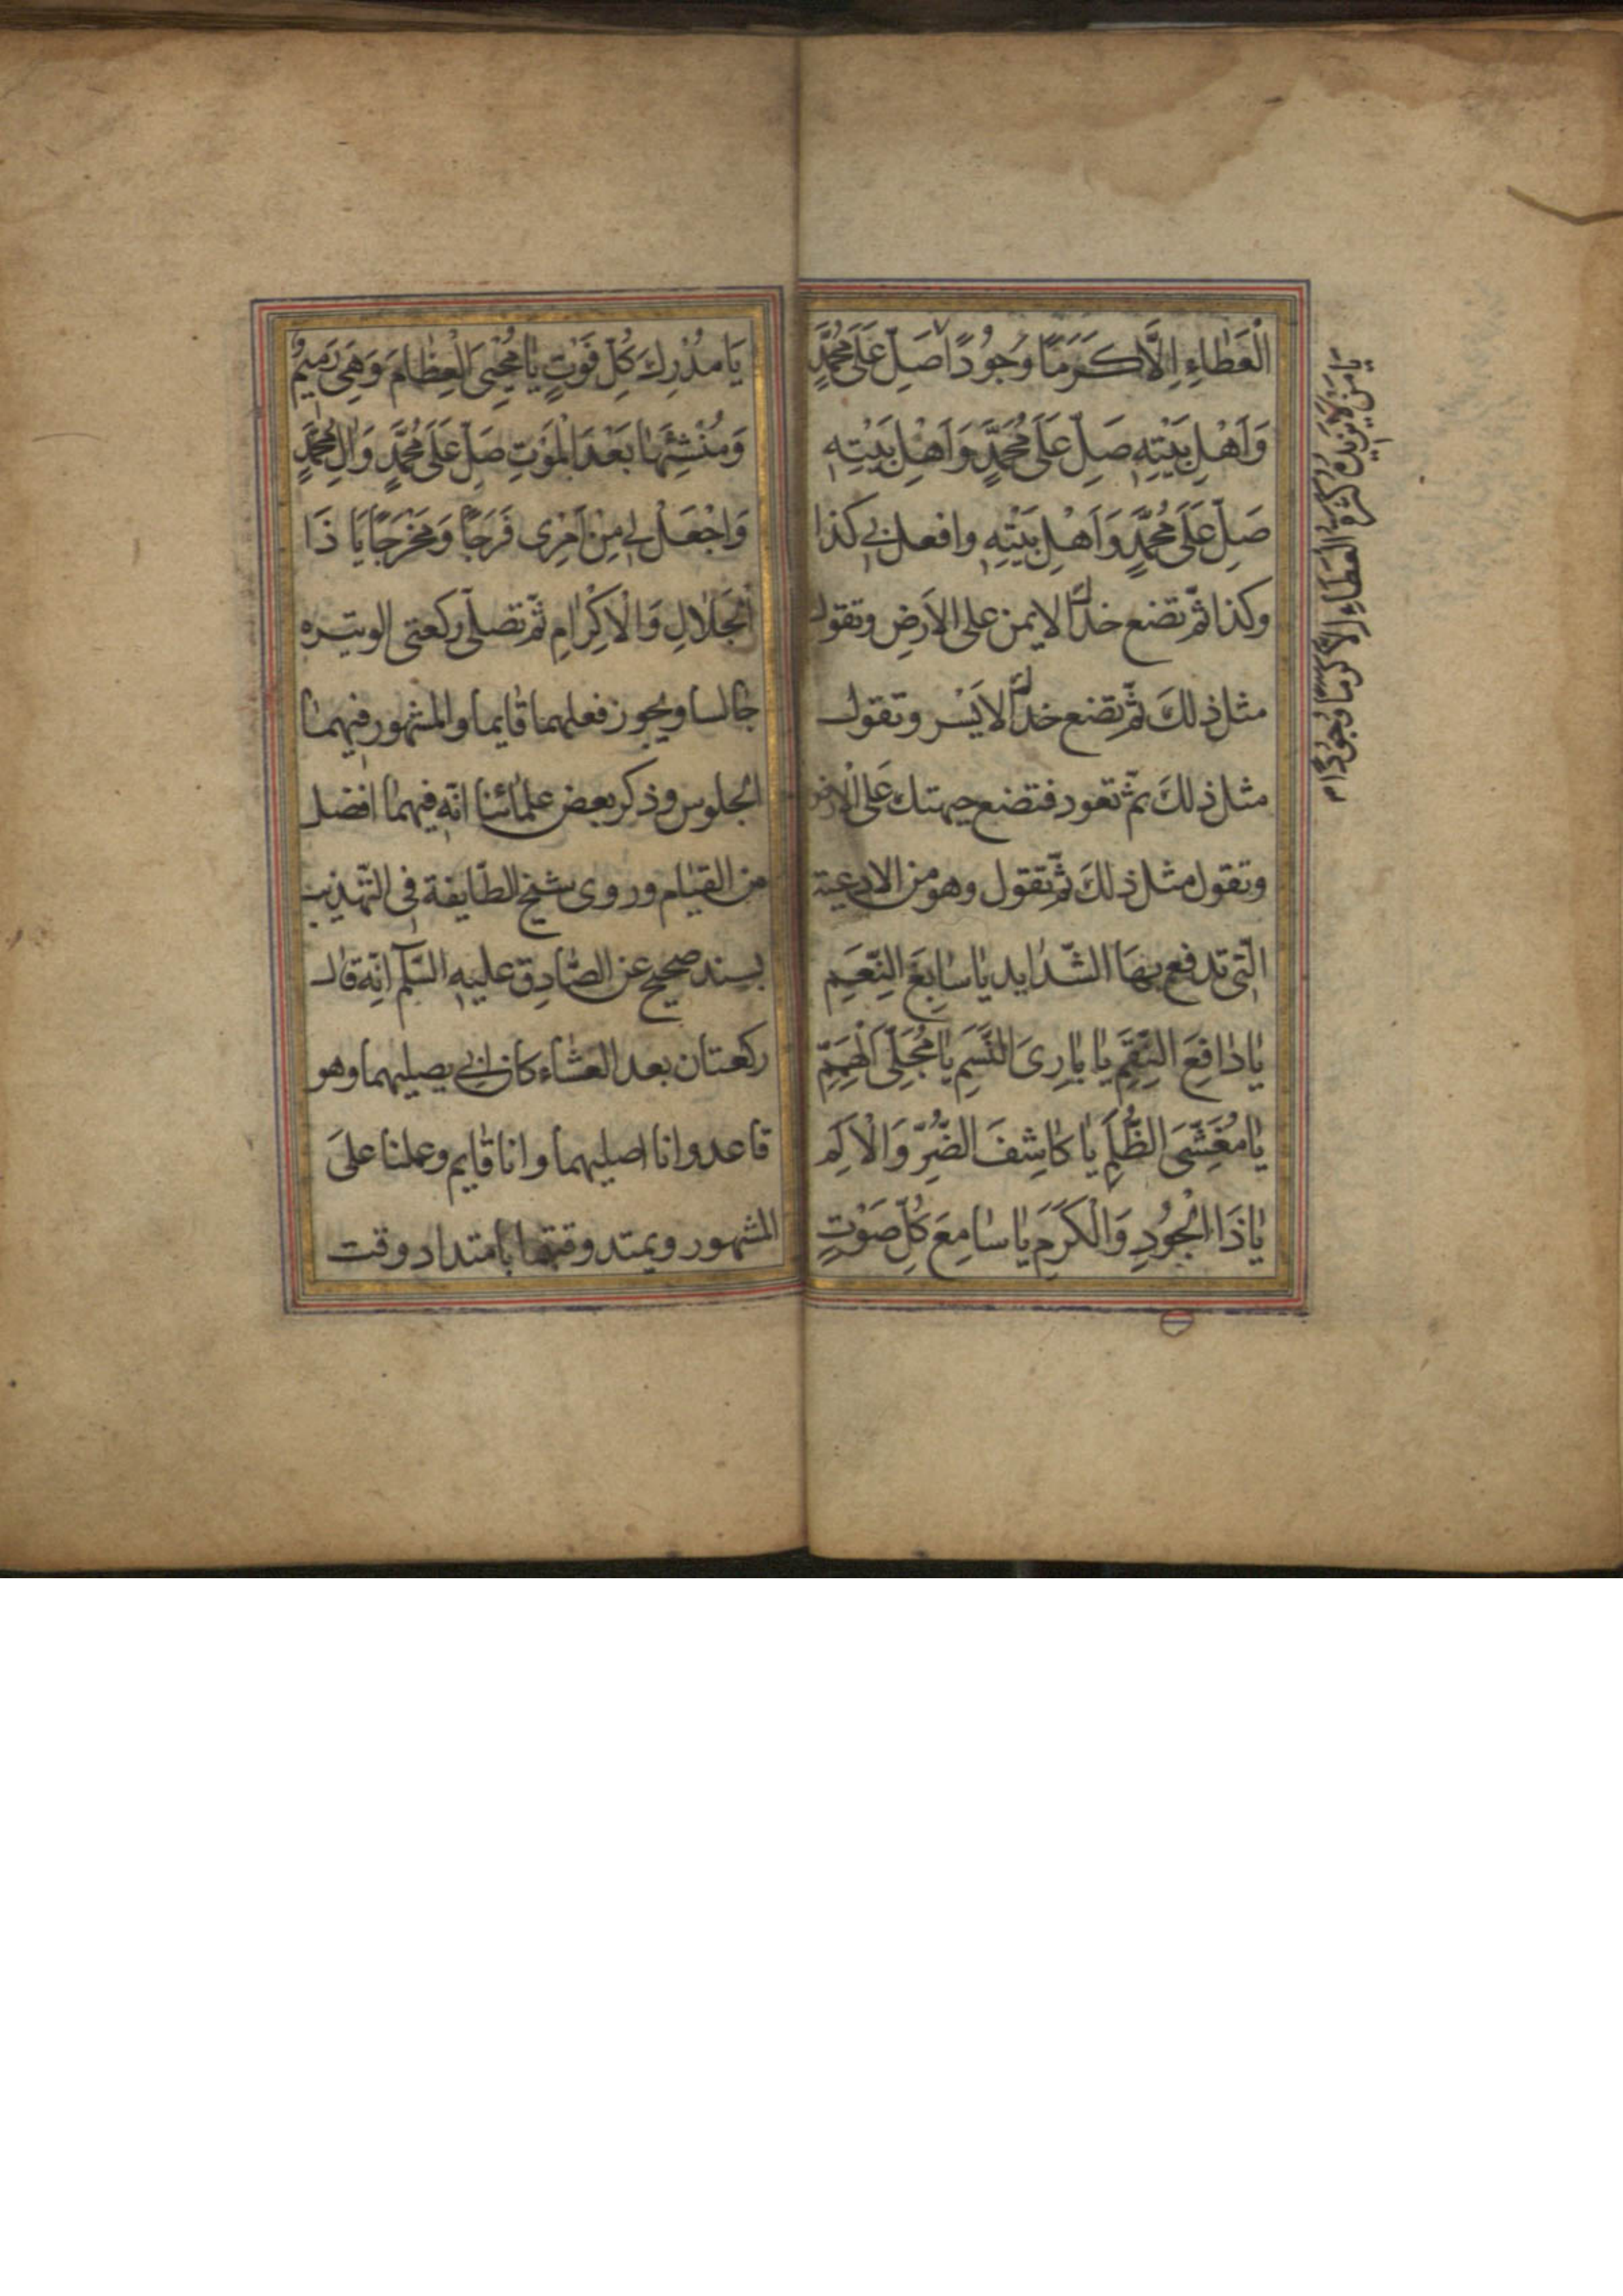 الْعَطٰاءِ اِلَّا كَرَمًا وُجُودًا صَلِّ عَلَى مُحَمَّدٍ
وَاَهْلِ بَيْتِهِ صَلِّ عَلَى مُحَمَّدٍ وَاَهْلِ بَيْتِهِ
صَلِّ عَلَى مُحَمَّدٍ وَاَهْلِ بَيْتِهِ وافعل بى كذا
وكذا ثمّ تضع خدّك الايمن على الارض وتقول
مثل ذلكَ ثمّ تضع خدّك الايَسر وتقول
مثل ذلكَ ثمّ تعود فتضع جبهتك عَلى الارض
وتقول مثل ذلكَ ثمّ تقول وهو من الادعية
الّتى تدفع بهَا الشّدايد يٰا سٰابِغَ النِّعَمِ
يٰا دٰافِعَ النِّقَمِ يٰا بٰارِىَ النَّسَمِ يٰا مُجَلِّىَ الْهِمَمِ
يٰا مُغَشِّىَ الظُّلَمِ يٰا كٰاشِفَ الضُّرِّ وَالْاَلَمِ
يٰا ذَا الْجُودِ وَالْكَرَمِ يٰا سٰامِعَ كُلِّ صَوْتٍ
يٰا مَنْ لٰا يَزِيدُهُ كَثْرَةُ الْعَطٰاءِ اِلَّا كَرَمًا وَجُودًا م
يَا مُدْرِكَ كُلِّ فَوْتٍ يٰا مُحْيِىَ الْعِظٰامِ وَهِىَ رَمِيمٌ
وَمُنْشِئَهٰا بَعْدَ الْمَوْتِ صَلِّ عَلَى مُحَمَّدٍ وَاٰلِ مُحَمَّدٍ
وَاجْعَلْ لى مِنْ اَمْرِى فَرَجًا وَمَخْرَجًا يَا ذَا
الْجَلٰالِ وَالْاِكْرٰامِ ثمّ تصلّى ركعتى الوتيره
جٰالسا ويجوز فعلهما قٰايما والمشهور فيهمٰا
الجلوس وذكر بعض علمٰائنا انّه فيهمٰا افضل
من القيٰام وروى شيخ الطّايفة فى التّهذيب
بسند صحيح عن الصّٰادِق عليه السّلٰم انّه قال
ركعتان بعد العشٰاء كان ابى يصليهما وهو
قاعد وانا اصليهما وانا قٰايم وعملنا علىَ
المشهور ويمتد وقتهما بٰامتداد وقت